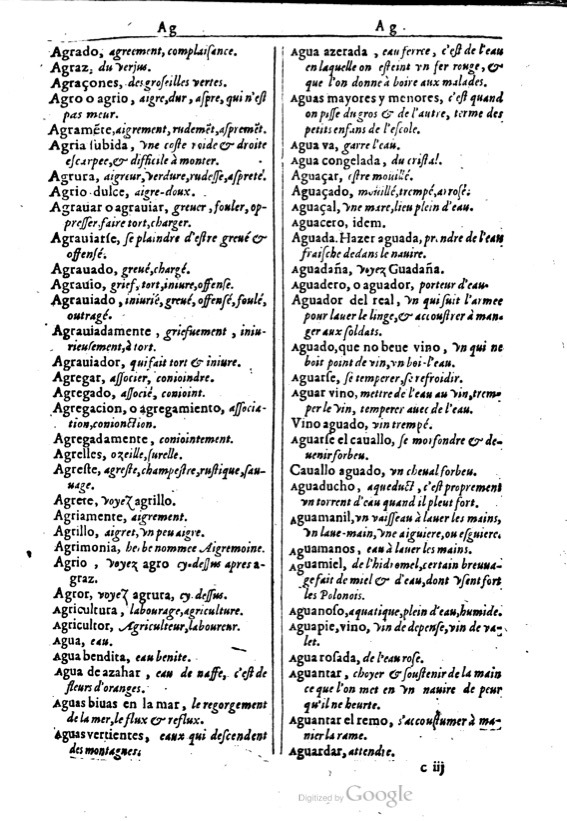 Ag
Agrado, agreement, complaiſance.
Agraz, du verjus.
Agraçones, des groſeilles vertes.
Agro o agrio, aigre, dur, aſpre, qui n'eſt
pas meur.
Agramẽte, aigrement, rudemẽt, aſpremẽt.
Agria ſubida, vne coſte roide & droite
eſcarpee, & difficile à monter.
Agrura, aigreur, verdure, rudeſſe, aſpreté.
Agrio dulce, aigre-doux.
Agrauar o agrauiar, greuer, fouler, op-
preſſer, faire tort, charger.
Agrauiarſe, ſe plaindre d'eſtre greué &
offenſé.
Agrauado, greué, chargé.
Agrauio, grief, tort, iniure, offenſe.
Agrauiado, iniurié, greué, offenſé, foulé,
outragé.
Agrauiadamente, griefuement, iniu-
rieuſement, à tort.
Agrauiador, qui fait tort & iniure.
Agregar, aſſocier, conioindre.
Agregado, aſſocié, conioint.
Agregacion, o agregamiento, aſſocia-
tion, conionction.
Agregadamente, coniointement.
Agrelles, ozeille, ſurelle.
Agreſte, agreſte, champeſtre, ruſtique, ſau-
uage.
Agrete, voyez agrillo.
Agriamente, aigrement.
Agrillo, aigret, vn peu aigre.
Agrimonia, herbe nommee Aigremoine.
Agrio, voyez agro cy-deſſus apres a-
graz.
Agror, voyez agrura, cy-deſſus.
Agricultura, labourage, agriculture.
Agricultor, Agriculteur, laboureur.
Agua, eau.
Agua bendita, eau benite.
Agua de azahar, eau de naffe, c'eſt de
fleurs d'oranges.
Aguas biuas en la mar, le regorgement
de la mer, le flux & reflux.
Aguas vertientes, eaux qui deſcendent
des montagnes.
Ag
Agua azerada, eau ferree, c'eſt de l'eau
en laquelle on eſteint vn fer rouge, &
que l'on donne à boire aux malades.
Aguas mayores y menores, c'eſt quand
on piſſe du gros & de l'autre, terme des
petits enfans de l'eſcole.
Agua va, garre l'eau.
Agua congelada, du criſtal.
Aguaçar, eſtre mouillé.
Aguaçado, mouillé, trempé, arroſé.
Aguaçal, vne mare, lieu plein d'eau.
Aguacero, idem.
Aguada. Hazer aguada, prendre de l'eau
fraiſche dedans le nauire.
Aguadaña, voyez Guadaña.
Aguadero, o aguador, porteur d'eau.
Aguador del real, vn qui ſuit l'armee
pour lauer le linge, & accouſtrer à man-
ger aux ſoldats.
Aguado, que no beue vino, vn qui ne
boit point de vin, vn boi-l'eau.
Aguarſe, ſe temperer, ſe refroidir.
Aguar vino, mettre de l'eau au vin, trem-
per le vin, temperer auec de l'eau.
Vino aguado, vin trempé.
Aguarſe el cauallo, ſe morfondre & de-
uenir forbeu.
Cauallo aguado, vn cheual forbeu.
Aguaducho, aqueduct, c'eſt proprement
vn torrent d'eau quand il pleut fort.
Aguamanil, vn vaiſſeau à lauer les mains,
vn laue-main, vne aiguiere, ou eſguiere.
Aguamanos, eau à lauer les mains.
Aguamiel, de l'hidromel, certain breuua-
ge fait de miel & d'eau, dont vſent fort
les Polonois.
Aguanoſo, aquatique, plein d'eau, humide.
Aguapie, vino, vin de depenſe, vin de va-
let.
Agua roſada, de l'eau roſe.
Aguantar, choyer & ſouſtenir de la main
ce que l'on met en vn nauire de peur
qu'il ne heurte.
Aguantar el remo, s'accouſtumer à ma-
nier la rame.
Aguardar, attendre.
c iij
Digitized by Google